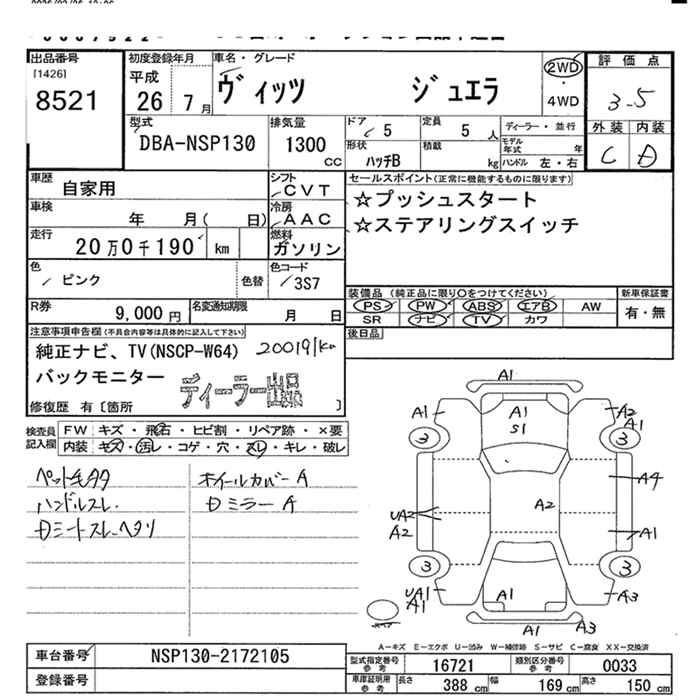 出品番号
[1426]
8521
初度登録年月
平成
26年 7月
車名・グレード
ヴィッツ ジュエラ
2WD
・
4WD
評価点
3.5
外装 内装
C D
型式
DBA-NSP130
排気量
1300
CC
ドア
5
形状
ハッチB
定員
5人
積載
kg
ディーラー・並行
モデル年式 年
ハンドル 左・右
車歴
自家用
シフト
CVT
車検
年 月( 日)
冷房
AAC
走行
20万0千190 km
燃料
ガソリン
色
ピンク
色替
色コード
3S7
R券
9,000円
名変通知期限
月 日
セールスポイント(正常に機能するものに限ります)
☆プッシュスタート
☆ステアリングスイッチ
装備品(純正品に限り○をつけてください)
PS PW ABS エアB AW
SR ナビ TV カワ
新車保証書
有・無
後日品
注意事項申告欄(不具合内容等は具体的に記入して下さい)
純正ナビ、TV(NSCP-W64) 200191km
バックモニター
ディーラー出品
修復歴 有〔箇所 〕
検査員記入欄
FW キズ・飛石・ヒビ割・リペア跡・×要
内装 キズ・汚レ・コゲ・穴・スレ・キレ・破レ
ペット毛多々
ハンドルスレ
Dシートスレ・ヘタリ
ホイールカバーA
DミラーA
A1
A1
A1
S1
A2
A1
3
3
A4
UA2
A2
A2
A1
3
3
UA1
A1
A1
A3
A1
A3
A-キズ E-エクボ U-凹み W-補修跡 S-サビ C-腐食 XX-交換済
車台番号
NSP130-2172105
登録番号
型式指定番号
参考
16721
類別区分番号
参考
0033
車庫証明用
参考
長さ 388 cm
幅 169 cm
高さ 150 cm